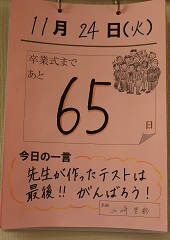 11月 24日(火)
卒業式まで
あと
65
日
今日の一言
先生が作ったテストは
最後!! がんばろう!
名前